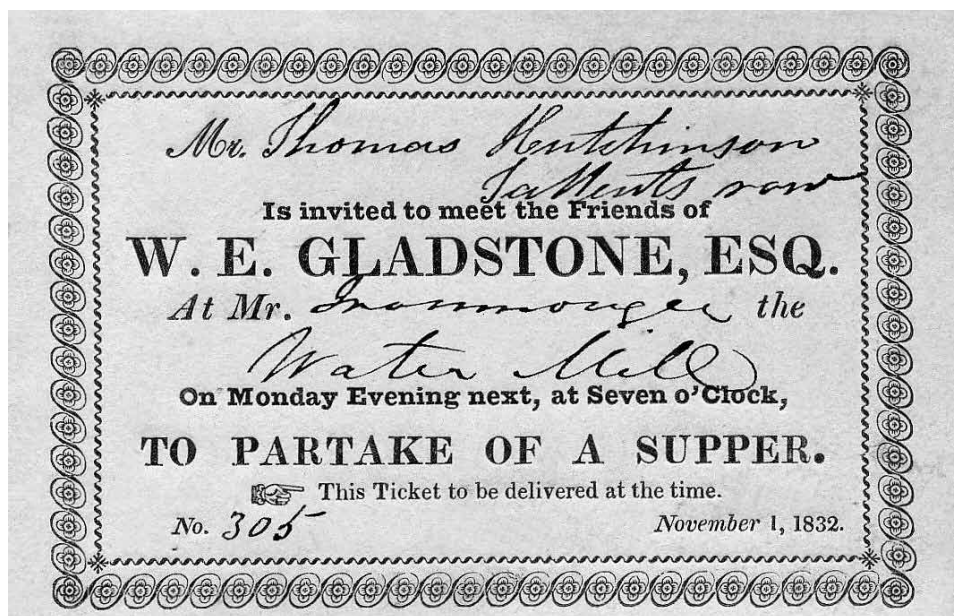 Mr. Thomas Hutchinson
Tallents row
Is invited to meet the Friends of
W. E. GLADSTONE, ESQ.
At Mr. Ironmonger the
Water Mill
On Monday Evening next, at Seven o'Clock,
TO PARTAKE OF A SUPPER.
This Ticket to be delivered at the time.
No. 305 November 1, 1832.